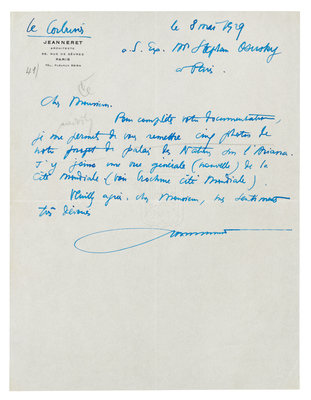 Le Corbusier
JEANNERET
ARCHITECTE
35, RUE DE SÈVRES
PARIS
TÉL. FLEURUS
le 8 mai 1929
à S. Exc. Mr Stephan
à Paris.
Cher Monsieur.
Pour compléter votre documentation,
je me permet de vous remettre cinq photos de
notre projet de palais des Nations sur l'Ariana.
J'y joins une vue générale (nouvelle) de la
Cité Mondiale (voir brochure cité Mondiale).
Veuillez agréer, cher Monsieur, nos sentiments
très dévoués